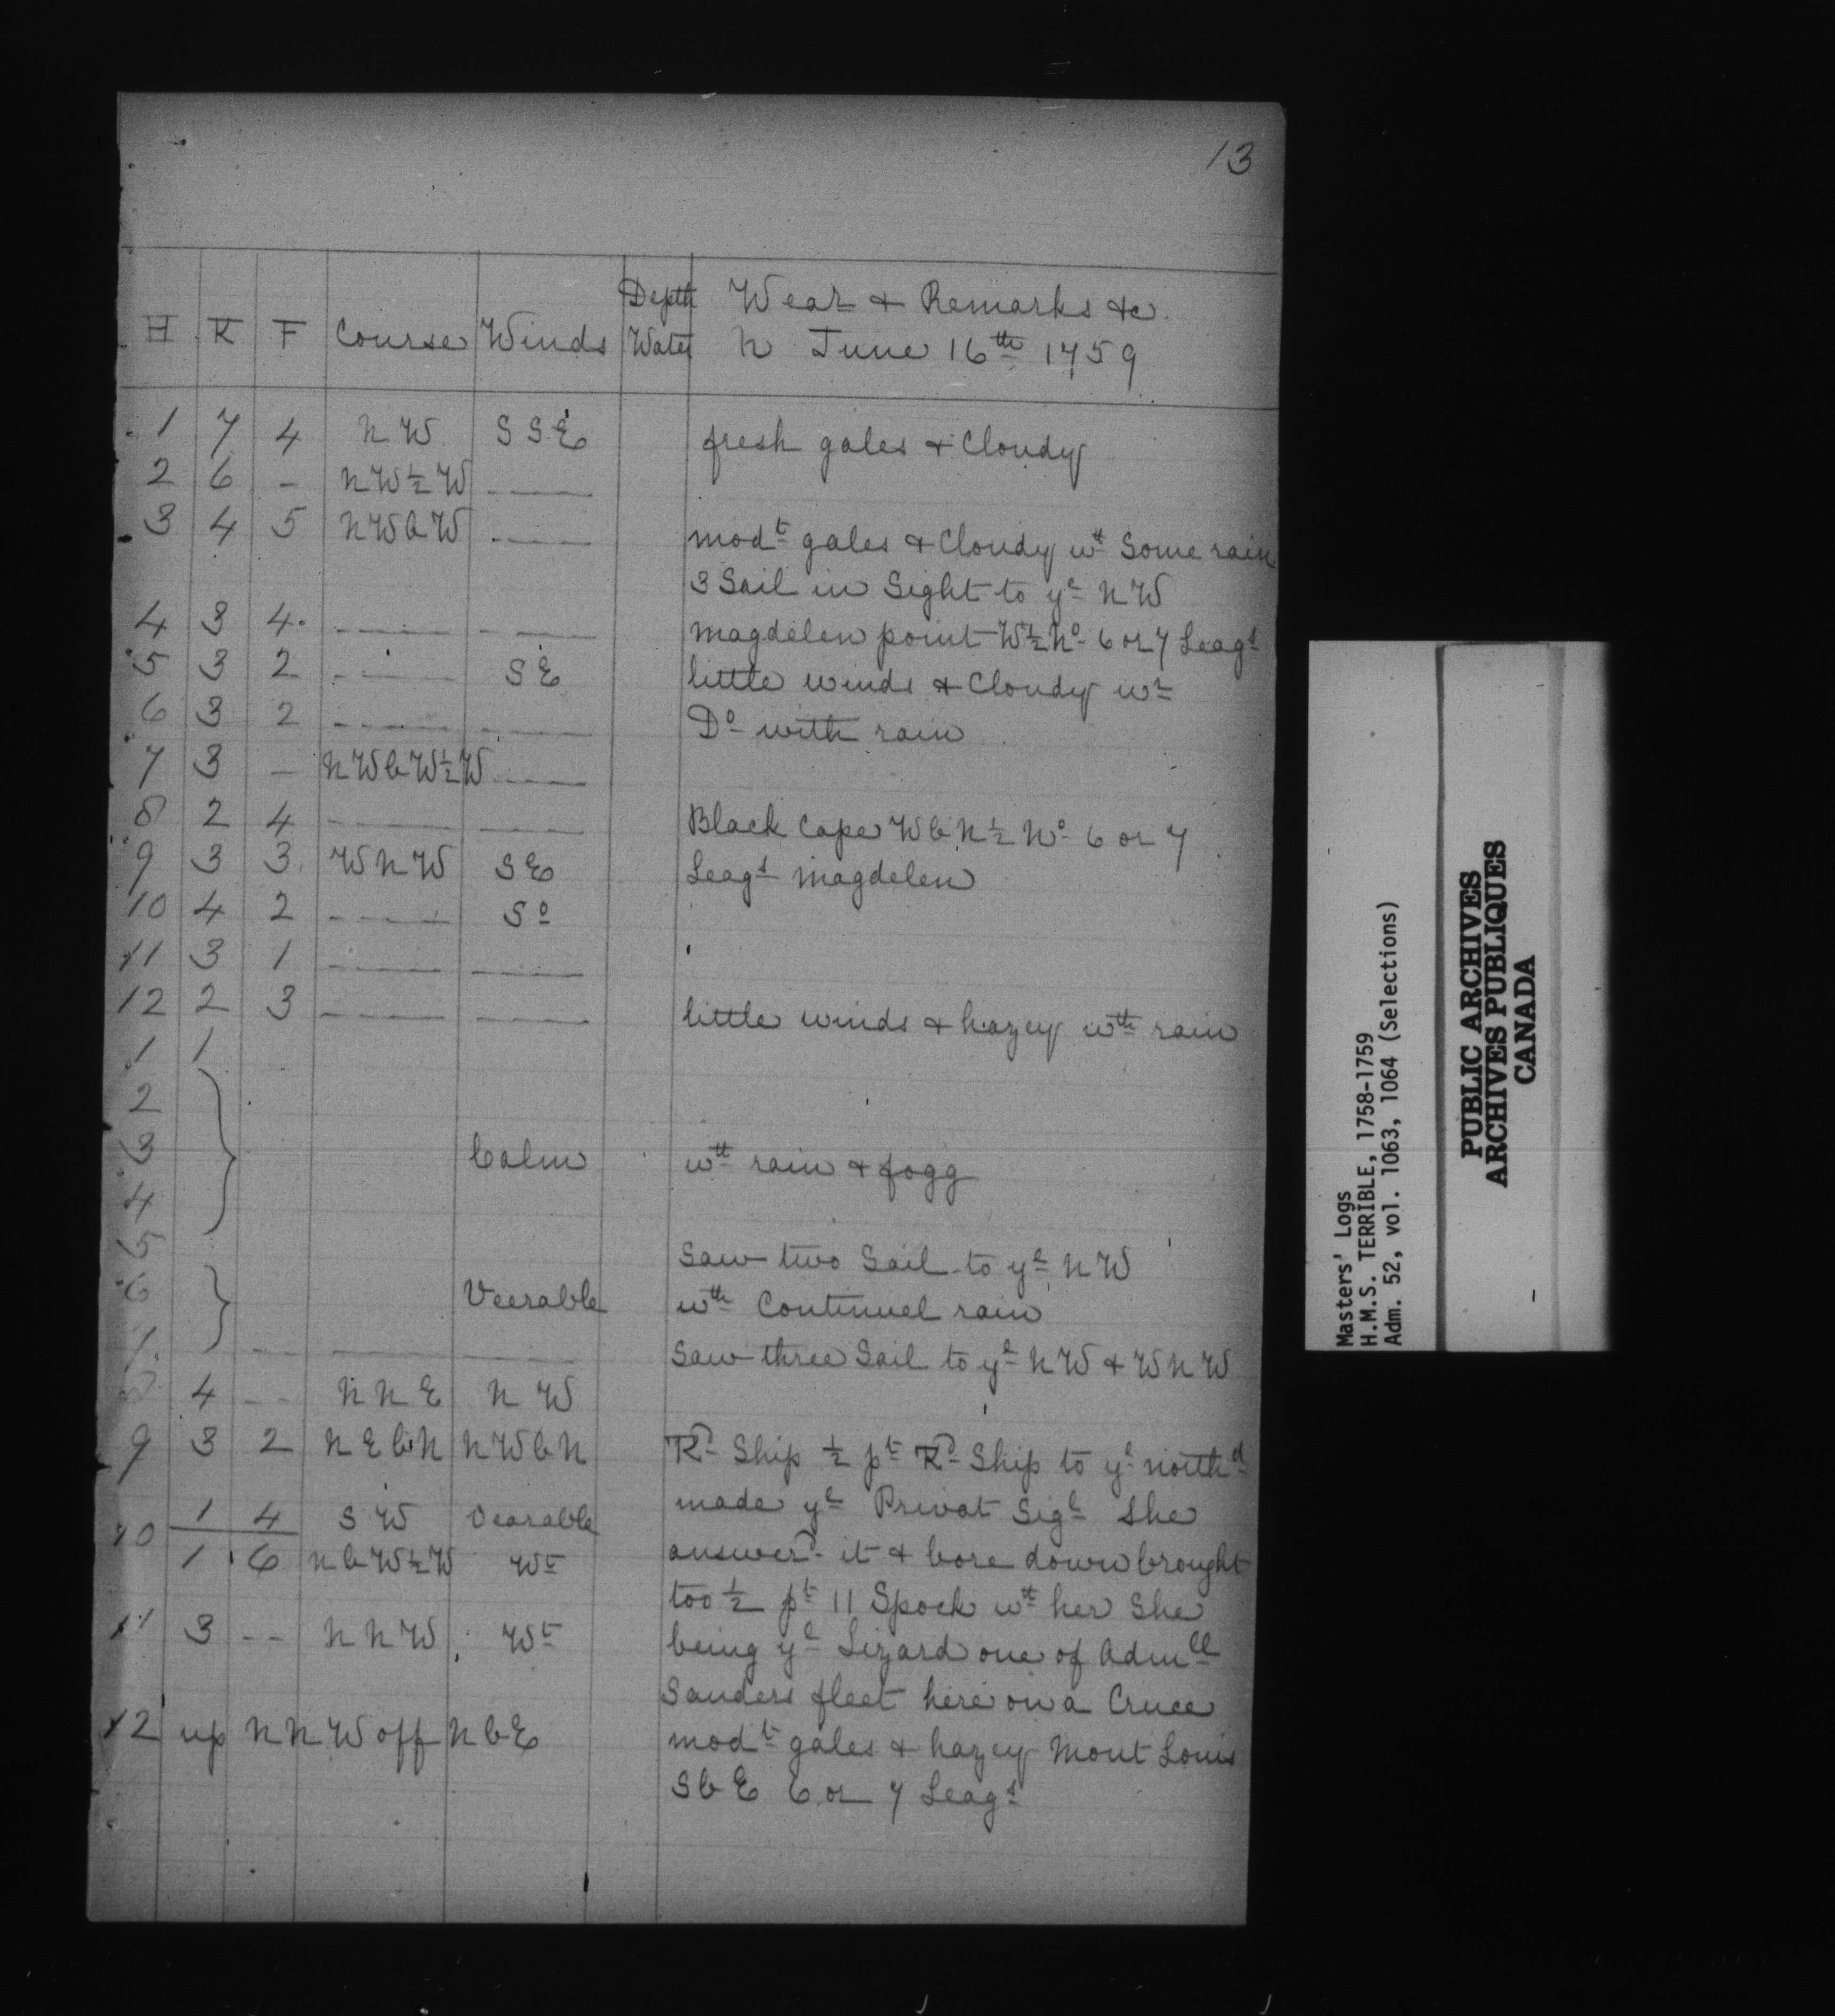 13
Depth Wear & Remarks &c
H K F Course Winds Water h June 16th 1759
1 7 4 NW SSE fresh gales & Cloudy
2 6 - NW½W ——
3 4 5 NWbW —— modt gales & Cloudy wt Some rain
3 Sail in Sight to ye NW
4 3 4 —— —— magdelen point W½No 6 or 7 Leags
5 3 2 —— SE little winds & Cloudy wr
6 3 2 —— —— Do with rain
7 3 - NWbW½W ——
8 2 4 —— —— Black Cape WbN½No 6 or 7
9 3 3 WNW SE Leags magdelen
10 4 2 —— So
11 3 1 —— ——
12 2 3 —— —— little winds & hazey wth rain
1 1
2
3 Calm wth rain & fogg
4
5 Saw two Sail to ye NW
6 Veerable wth Continuel rain
7 —— —— —— Saw three Sail to ye NW & WNW
8 4 -- NNE NW
9 3 2 NEbN NWbN Kd Ship ½ pt Kd Ship to ye northd
1 4 SW Vearable made ye Privat Sigl She
10 1 6 NbW½W Wt answerd it & bore down brought
too ½ pt 11 Spock wt her She
11 3 -- NNW Wt being ye Lizard one of Admll
Sanders fleet here on a Cruce
12 up NNW off NbE modt gales & hazey Mont Louis
SbE 6 or 7 Leags
Masters' Logs
H.M.S. TERRIBLE, 1758-1759
Adm. 52, vol. 1063, 1064 (Selections)
PUBLIC ARCHIVES
ARCHIVES PUBLIQUES
CANADA